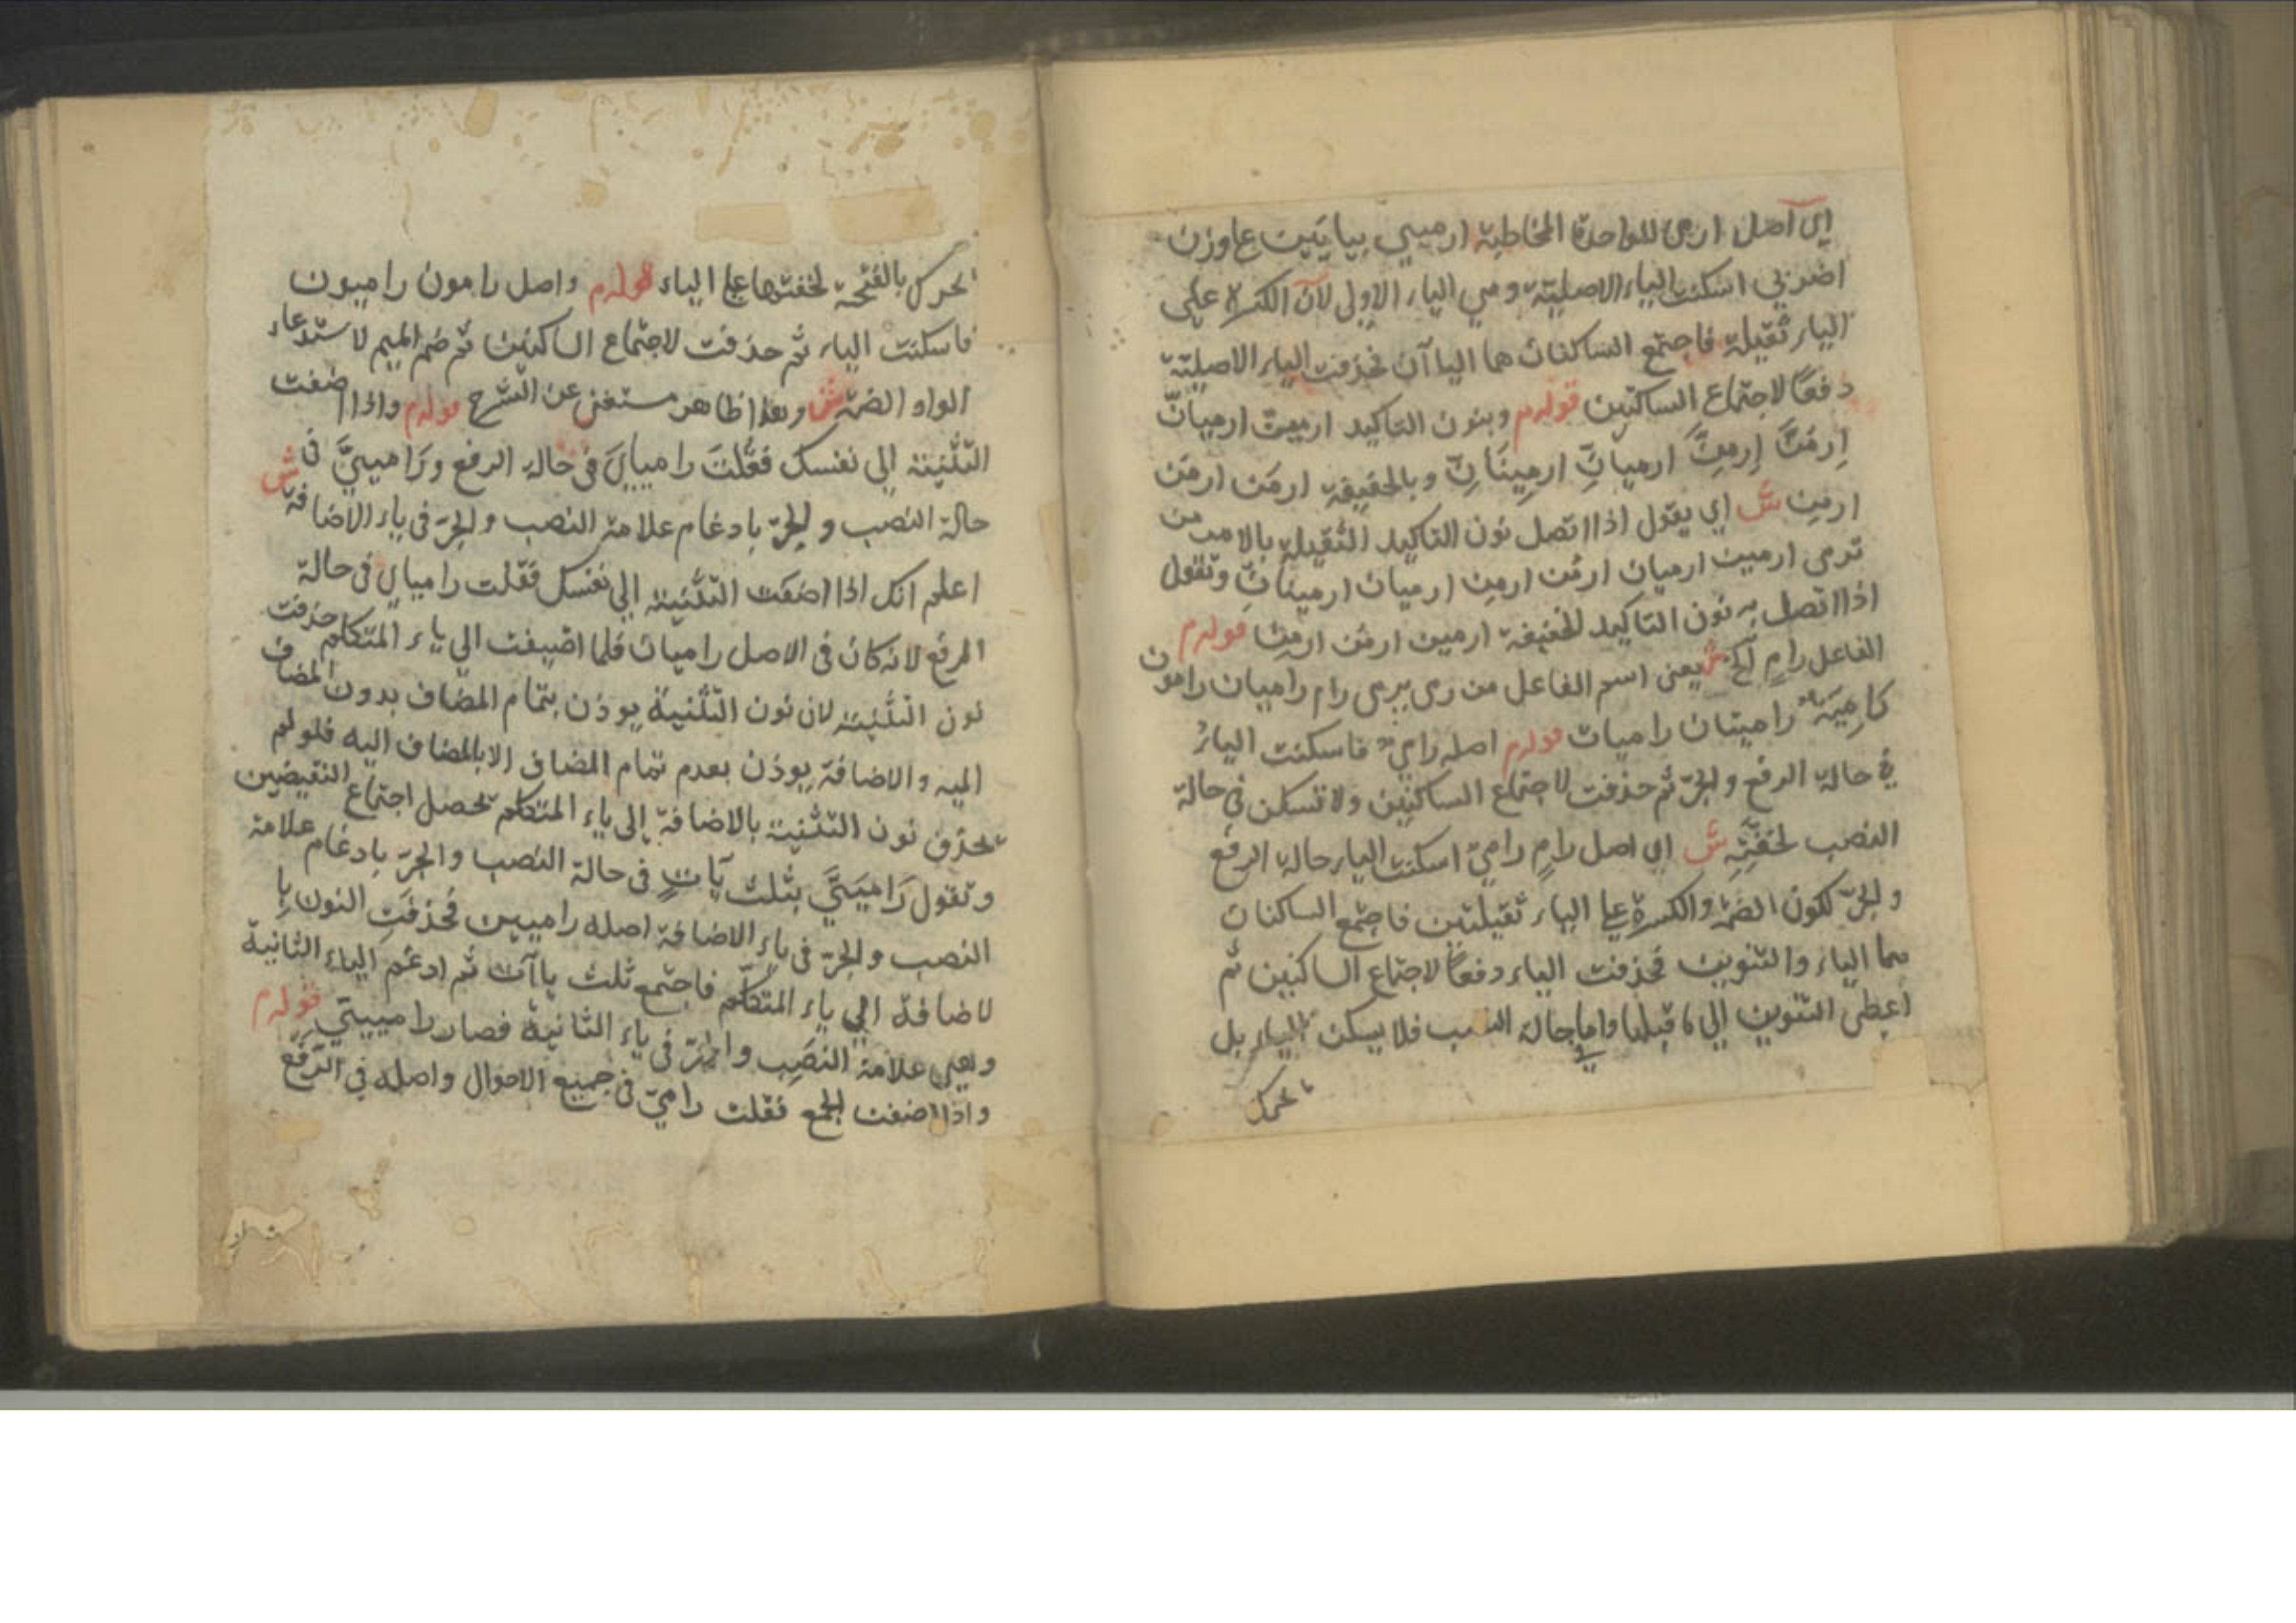 اي اصل ارمي للواحدة المخاطبة ارميي بيايين على وزن
اضربي اسكنت الياء الاصلية وهي الياء الاولى لان الكسرة على
الياء ثقيلة فاجتمع الساكنان هما الياآن فحذفت الياء الاصلية
دفعا لاجتماع الساكنين قوله م وبنون التاكيد ارمينّ ارميانّ
ارمُنّ ارمِنّ ارميانّ ارمينانّ وبالخفيفة ارمَن ارمُن
ارمِن ش اي يقول اذا اتصل نون التاكيد الثقيلة بالامر من
ترمى ارمين ارميان ارمُن ارمِن ارميان ارمينانّ وتقول
اذا اتصل به نون التاكيد الخفيفة ارمين ارمُن ارمِن قوله م
الفاعل رامٍ الخ ش يعنى اسم الفاعل من رمى يرمى رام راميان رامون
راميَة راميتان راميات قوله م اصله رامي فاسكنت الياءُ
في حالة الرفع والجرّ ثم حذفت لاجتماع الساكنين ولا تسكن في حالة
النصب لخفّتِه ش اي اصل رامٍ راميٌ اسكنت الياء حالة الرفع
والجرّ لكون الضمة والكسرة على الياء ثقيلتين فاجتمع الساكنان
هما الياء والتنوين فحذفت الياء دفعا لاجتماع الساكنين ثم
اعطى التنوين الى ما قبلها واما في حالة النصب فلا يسكن الياء بل
تحرك
تحرك بالفتحة لخفتها على الياء قوله م واصل رامون راميون
فاسكنت الياء ثم حذفت لاجتماع الساكنين ثم ضم الميم لاستدعاء
الواو الضمة ش وهذا ظاهر مستغنى عن الشرح قوله م واذا اضفت
التثنية الى نفسك فقلت رامياي في حالة الرفع ورَامييَّ في
حالة النصب والجرّ بادغام علامة النصب والجرّ في ياء الاضافة ش
اعلم انك اذا اضفت التثنية الى نفسك فقلت رامياي في حالة
الرفع لانه كان في الاصل راميان فلما اضيفت الي ياء المتكلم حذفت
نون التثنية لان نون التثنية يوذن بتمام المضاف بدون المضاف
اليه والاضافة يوذن بعدم تمام المضاف الا بالمضاف اليه فلو لم
يحذف نون التثنية بالاضافة إلى ياء المتكلم يحصل اجتماع النقيضين
وتقول رَامييَّ بثلث يآتٍ في حالة النصب والجرّ بادغام علامة
النصب والجرّ في ياء الاضافة اصله راميين فحذفتِ النون با
لاضافة الي ياء المتكلّم فاجتمع ثلث ياآت ثم ادغم الياء الثانية
وهي علامة النصب والجرّ في ياء الثانية فصار رامييّ قوله م
واذا اضفت الجمع فقلت راميّ في جميع الاحوال واصله في الرّفع